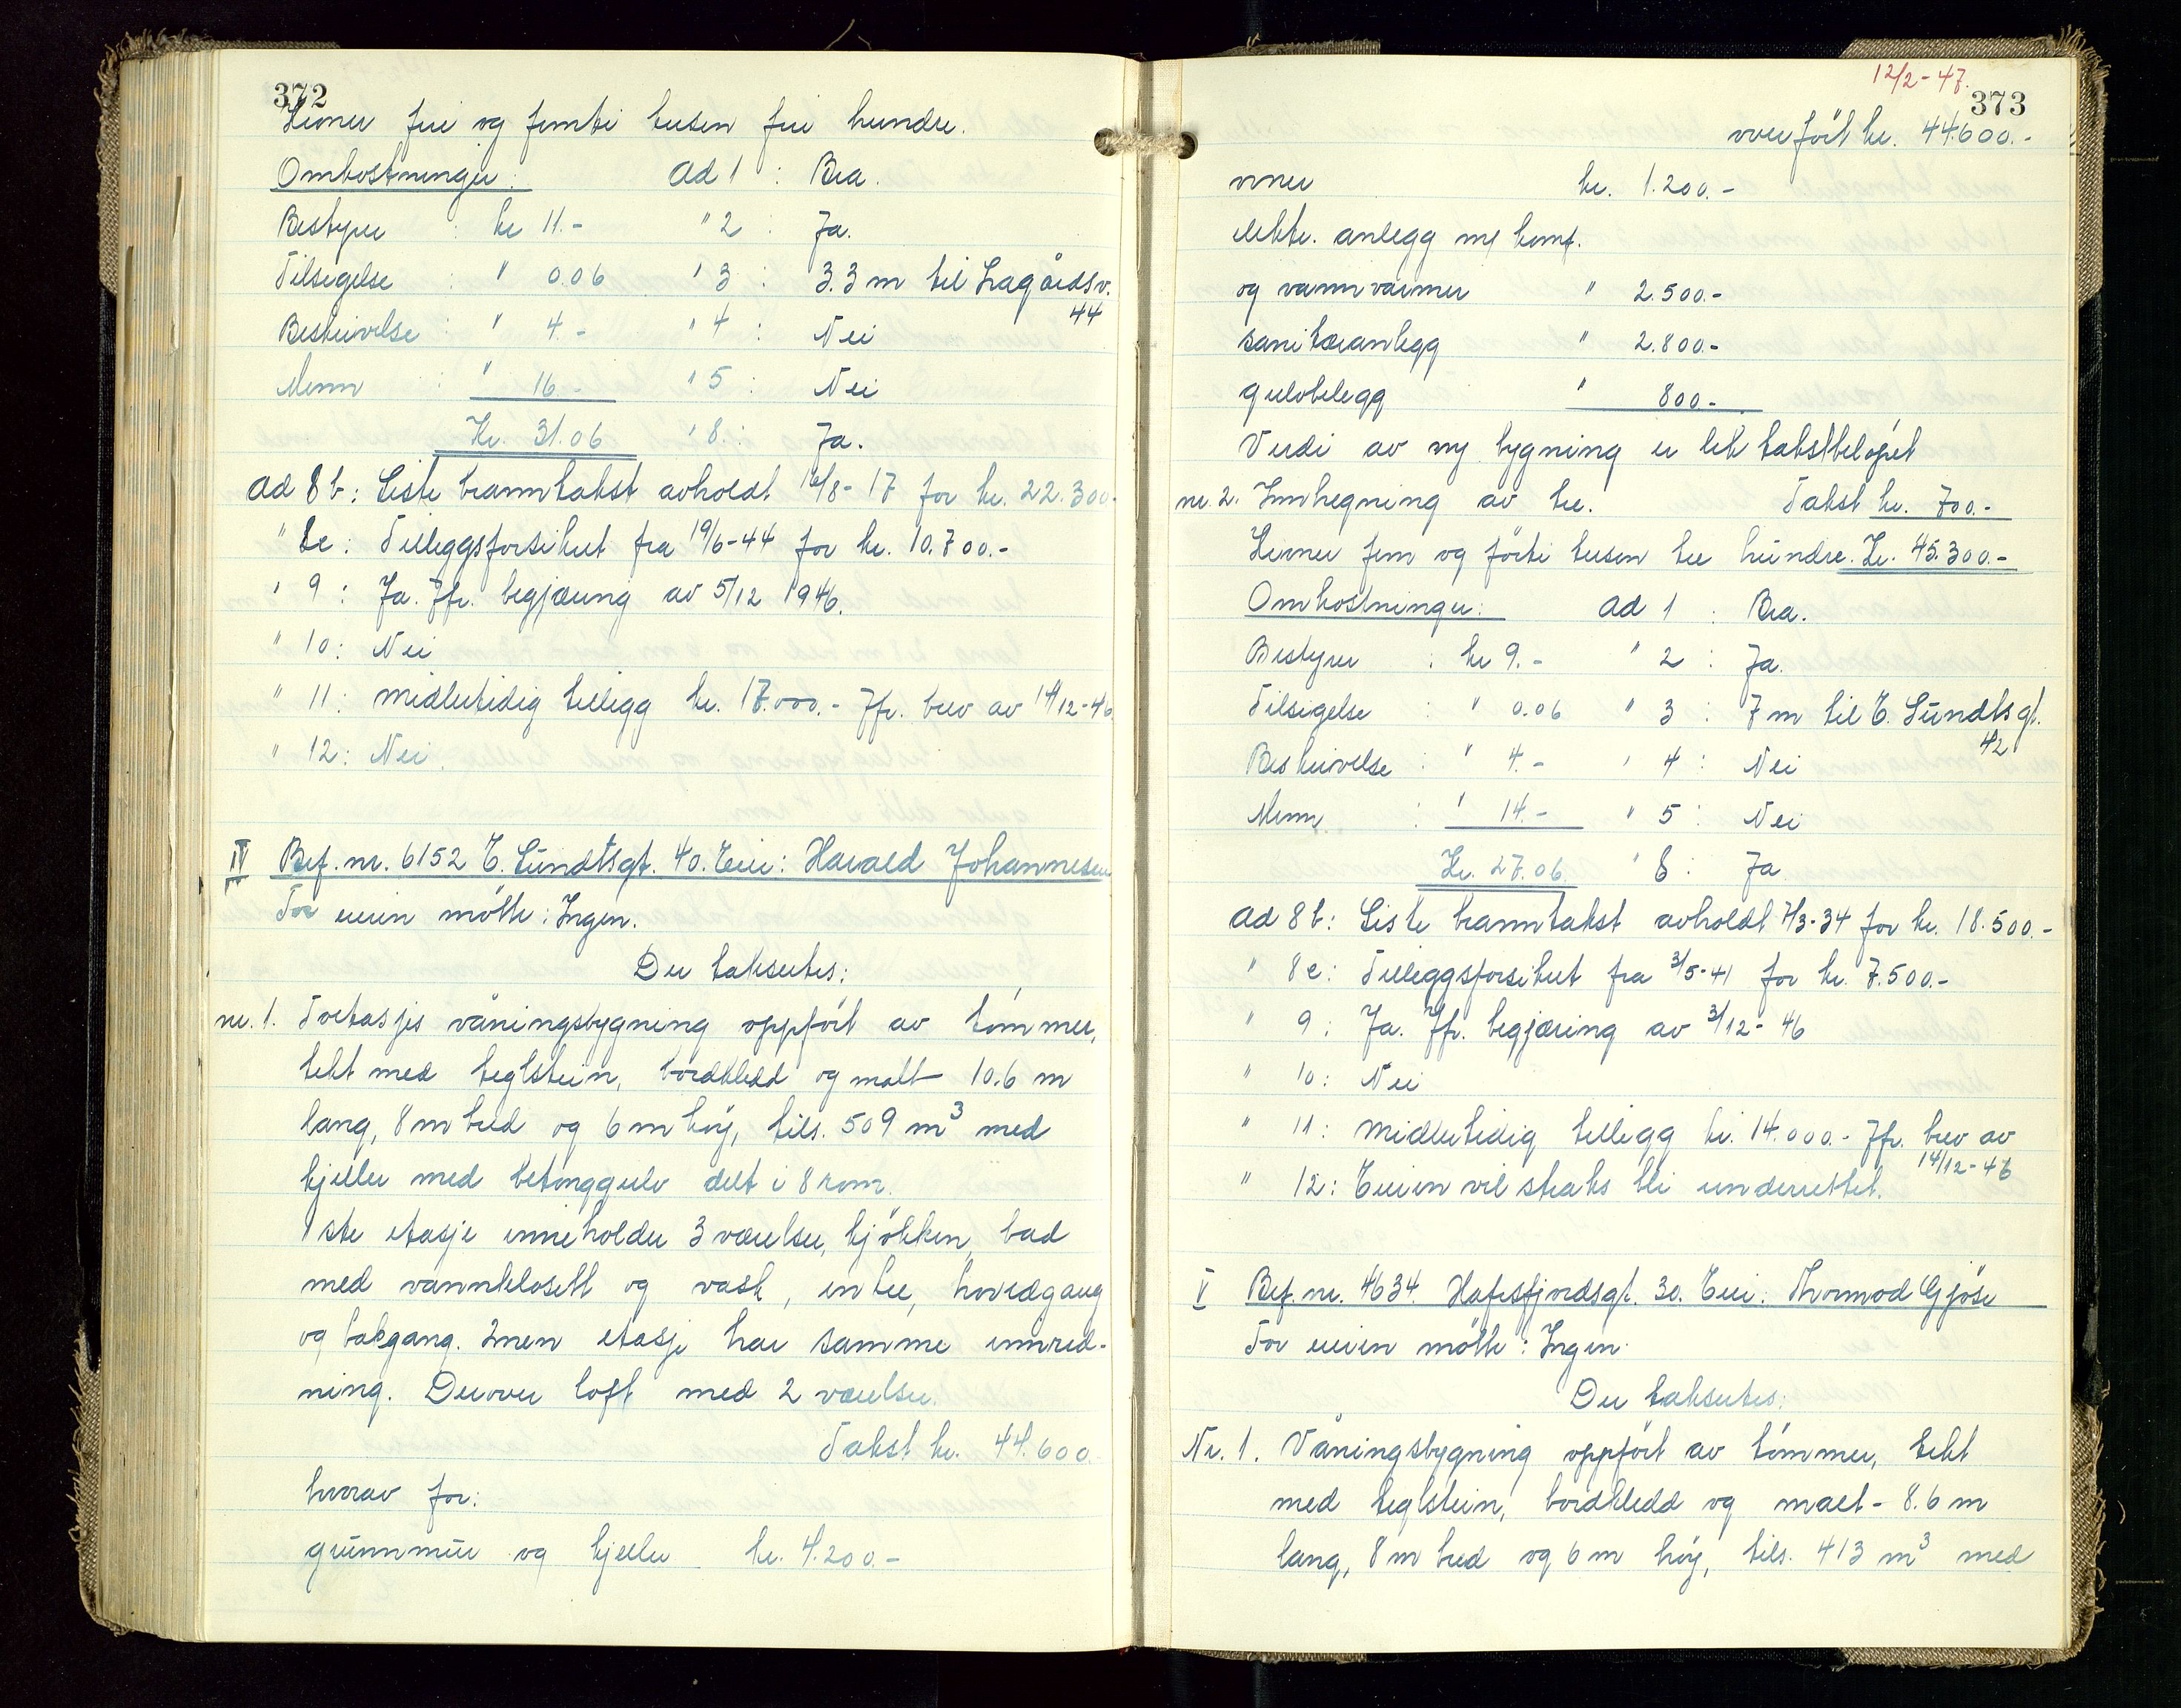 372
Kroner fire og femti tusen fire hundre.
Omkostninger: ad 1 : Bra.
Bestyrer : kr 11.- " 2 : Ja.
Tilsigelse : " 0.06 " 3 : 3.3 m til Lagårdsv. 44
Beskrivelse : " 4.- " 4 : Nei
Menn : " 16.- " 5 : Nei
Kr. 31.06 " 8. : Ja.
ad 8 b : Siste branntakst avholdt 16/8-17 for kr. 22.300.-
" 8c : Tilleggsforsikret fra 19/6-44 for kr. 10.700.-
" 9 : Ja. Jfr. begjæring av 5/12 1946.
" 10 : Nei
" 11 : midlertidig tillegg kr. 17.000.- Jfr. brev av 14/12-46
" 12 : Nei.
IV Bef. nr. 6152 E. Sundtsgt. 40. Eier: Harald Johannesen
For eieren møtte: Ingen.
Der taksertes:
nr. 1. Toetasjes våningsbygning oppført av tømmer,
tekt med teglstein, bordkledd og malt - 10.6 m
lang, 8 m bred og 6 m høy, tils. 509 m³ med
kjeller med betonggulv delt i 8 rom.
1ste etasje inneholder 3 værelser, kjøkken, bad
med vannklosett og vask, entre, hovedgang
og bakgang. 2nen etasje har samme innred-
ning. Derover loft med 2 værelser.
Takst kr. 44.600
hvorav for:
grunnmur og kjeller kr. 4.200.-
12/2-47.
373
overført kr. 44.600.-
ovner kr. 1.200.-
elektr. anlegg m/ komf.
og vannvarmer " 2.500.-
sanitæranlegg " 2.800.-
gulvbelegg " 800.-
Verdi av ny bygning er lik takstbeløpet
nr. 2. Innhegning av tre. Takst kr. 700.-
Kroner fem og førti tusen tre hundre. Kr. 45.300.-
Omkostninger: ad 1 : Bra.
Bestyrer : kr 9.- " 2 : Ja.
Tilsigelse : " 0.06 " 3 : 7 m til E. Sundtsgt. 42
Beskrivelse : " 4.- " 4 : Nei
Menn : " 14.- " 5 : Nei
Kr. 27.06. " 8 : Ja
ad 8 b : Siste branntakst avholdt 7/3-34 for kr. 18.500.-
" 8c : Tilleggsforsikret fra 3/5-41 for kr. 7.500.-
" 9 : Ja. Jfr. begjæring av 3/12-46
" 10 : Nei
" 11 : midlertidig tillegg kr. 14.000.- Jfr. brev av 14/12-46
" 12 : Eieren vil straks bli underrettet.
V Bef. nr. 4634. Hafrsfjordsgt. 30. Eier: Thormod Gjøse
For eieren møtte: Ingen.
Der taksertes:
Nr. 1. Våningsbygning oppført av tømmer, tekt
med teglstein, bordkledd og malt - 8.6 m
lang, 8 m bred og 6 m høy, tils. 413 m³ med